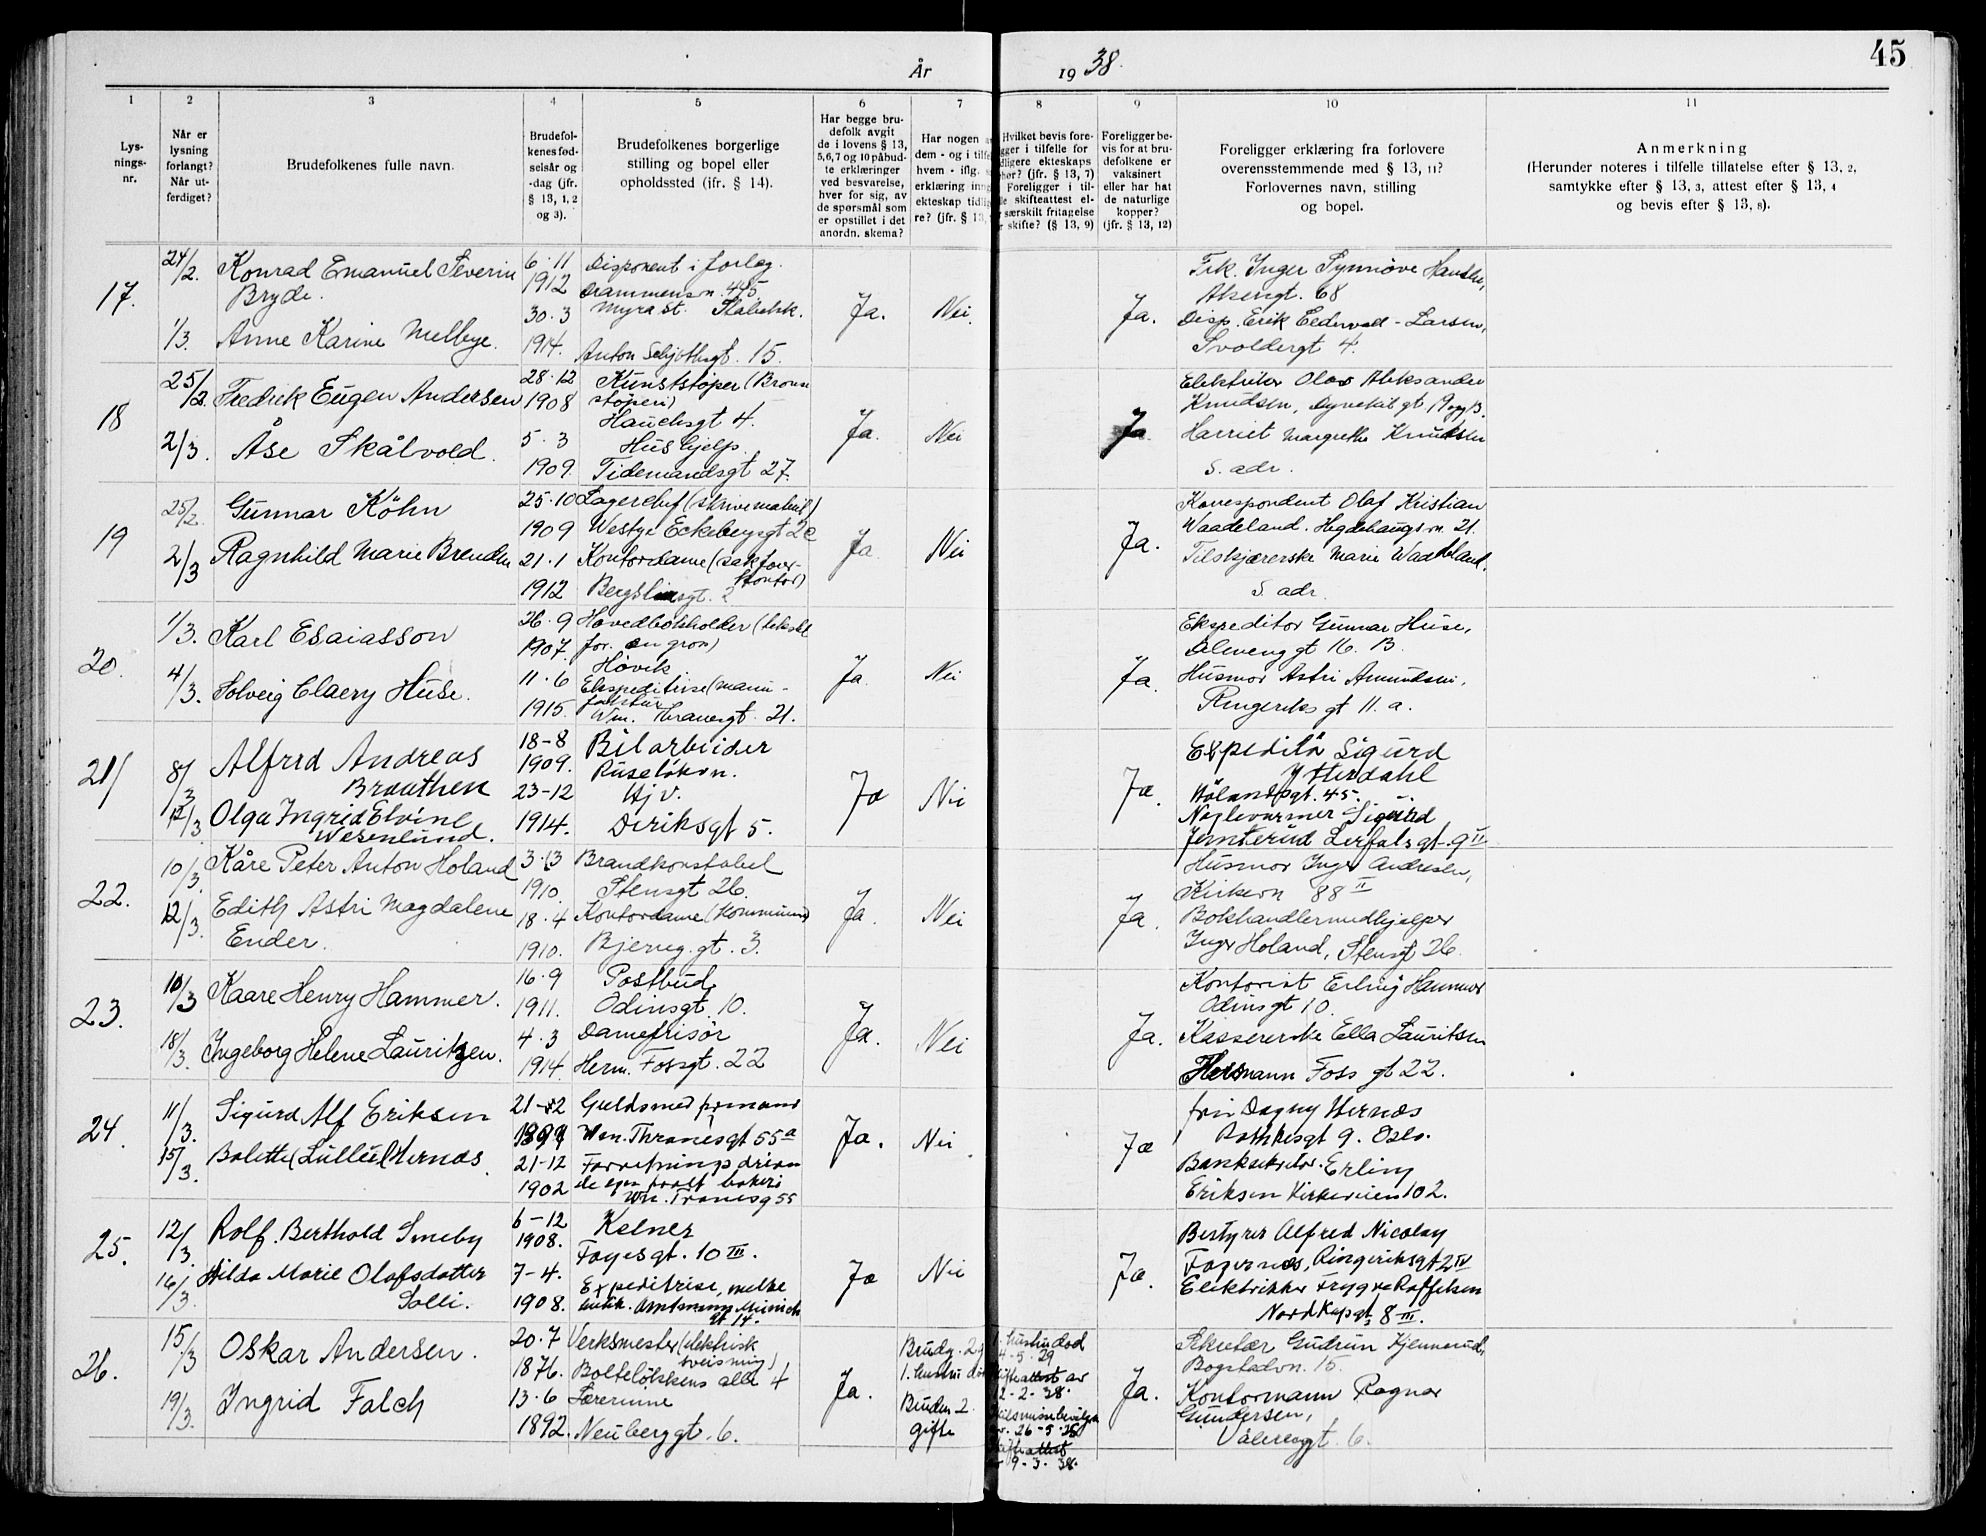 45
År 1938.
1 2 3 4 5 6 7 8 9 10 11
Lys-
nings-
nr.
Når er
lysning
forlangt?
Når ut-
ferdiget?
Brudefolkenes fulle navn.
Brudefol-
kenes fød-
selsår og
-dag (jfr.
§ 13, 1, 2
og 3).
Brudefolkenes borgerlige
stilling og bopel eller
opholdssted (jfr. § 14).
Har begge bru-
defolk avgit
de i lovens § 13,
5, 6, 7 og 10 påbud-
te erklæringer
ved besvarelse,
hver for sig, av
de spørsmål som
er opstillet i det
anordn. skema?
Har nogen
dem - og i
hvem - iflg.
erklæring
ekteskap
re? (jfr. § 13,
Hvilket bevis fore-
gger i tilfelle for
dligere ekteskaps
hør? (jfr. § 13, 7)
Foreligger i til-
le skifteattest el-
særskilt fritagelse
skifte? (§ 13, 9)
Foreligger be-
vis for at bru-
defolkene er
vaksinert
eller har hat
de naturlige
kopper?
(jfr. § 13, 12)
Foreligger erklæring fra forlovere
overensstemmende med § 13, 11?
Forlovernes navn, stilling
og bopel.
Anmerkning
(Herunder noteres i tilfelle tillatelse efter § 13, 2,
samtykke efter § 13, 3, attest efter § 13, 4
og bevis efter § 13, 8).
17.
24/2.
1/3.
Konrad Emanuel Severin
Bryde.
Anne Karine Melbye.
6.11
1912
30.3
1914.
Disponent i forlag.
Drammensvn. 445
Myra st. Stabekk.
Anton Schjøthsgt. 15.
Ja.
Nei.
Ja.
Frk. Inger Synnøve Hansen,
Akersgt. 68
Disp. Erik Cedervall-Larsen,
Svoldergt 4.
18
25/2.
2/3.
Fredrik Eugen Andersen
Åse Skålvold.
28.12
1908
5.3
1909.
Kunststøper (Bronse
støperi)
Hauchsgt 4.
Hushjelp.
Tidemandsgt 27.
Ja.
Nei
Ja
Elektriker Olav Aleksander
Knudsen, Dyvekes gt
Harriet Margrethe Knudsen
s. adr.
19
25/2.
2/3
Gunnar Köhn
Ragnhild Marie Brenden
25.10
1909
21.1
1912
Lagerchef (skrivemaskil)
Westye Eckebergsgt 2c
Kontordame (sakfører-
kontor)
Bergsliensgt. 2
Ja
Nei
Ja.
Korrespondent Olaf Kristian
Waadeland. Hegdehaugsvn. 21.
Tilskjærerske Marie Waadeland.
s. adr.
20.
1/3.
4/3.
Karl Esaiasson
Solveig Claery Huse.
26.9
1907.
11.6
1915.
Hovedbokholder (tekstil
for. en gros)
Høvik
Ekspeditrise (manu-
faktur
Wm. Thranesgt. 21.
Ja.
Nei
Ja.
Ekspeditør Gunnar Huse,
16. B.
Husmor Astri Amundsen,
Ringeriks gt 11. a.
21/
8/3
12/3
Alfred Andreas
Braathen
Olga Ingrid Elvine
Wesenlund.
18-8
1909.
23-12
1914.
Bilarbeider
Ruseløkvn.
Hjv.
Deriksgt 5.
Ja
Nei
Ja.
Expeditør Sigurd
Ytterdahl
Hølandsgt. 45.
Nøglevarmer Sigurd
Jemterud Lerfalsgt. 9 II
22.
10/3.
12/3.
Kåre Peter Anton Holand
Edith Astri Magdalene
Ender.
3.3
1910.
18.4
1910.
Brandkonstabel
Stensgt 26.
Kontordame (kommunen)
Bjerreg. gt. 3.
Ja.
Nei
Ja.
Husmor Inger Andresen,
Kirkevn 88 II
Bokhandlermedhjelper
Inger Holand, Stensgt 26.
23.
10/3
18/3.
Kaare Henry Hammer.
Ingeborg Helene Lauritzen.
16.9
1911.
4.3
1914.
Postbud,
Odinsgt. 10.
Damefrisør
Herm. Fossgt. 22
Ja.
Nei
Ja.
Kontorist Erling Hammer
Odinsgt 10.
Kassererske Ella Lauritsen
Hermann Foss gt 22.
24.
11/3.
15/3.
Sigurd Alf Eriksen
Bolette (Lullei) Hernæs
21-
1899
21-12
1902
Guldsmed
Wm. Thranesgt 55a
Forretningsdriven
de egen
Wm. Tranesg 55
Ja.
Nei
Ja
frøken Dagny Hernæs
Rathkesgt 9. Oslo.
Banksekretær. Erling
Eriksen Kirkeveien 102.
25.
12/3.
16/3.
Rolf. Berthold Smeby
Hilda Marie Olafsdatter
Solli.
6-12
1908.
7-4.
1908.
Kelner
Fayesgt. 10 III.
Expeditrise, melke
butik. Amtmann Meinich
gt 14.
Ja
Nei
Ja.
Bestyrer Alfred Nicolay
Fagernæs, Ringeriksgt 2 IV
Elektrikker Trygve Raffelsen
Nordkapgt 8 III.
26.
15/3
19/3.
Oskar Andersen.
Ingrid Falch
20.7
1876.
13.6
1892.
Verksmester (elektrisk
sveisning)
Bolteløkkens alle 4
Lærerinne
Neuberggt. 6.
Ja.
Brudg. 2.
1. hustru død
Bruden 2.
gifte
1. hustru død
4-5.29
skifteattest av
2-2-38.
skilsmissebevilgn
av. 26-5.28
skifteattest
9-3.38.
Ja.
Sekretær Gudrun Kjennerud,
Bogstadvn. 15.
Kontormann Ragnar
Gundersen,
Vålerenggt. 6.